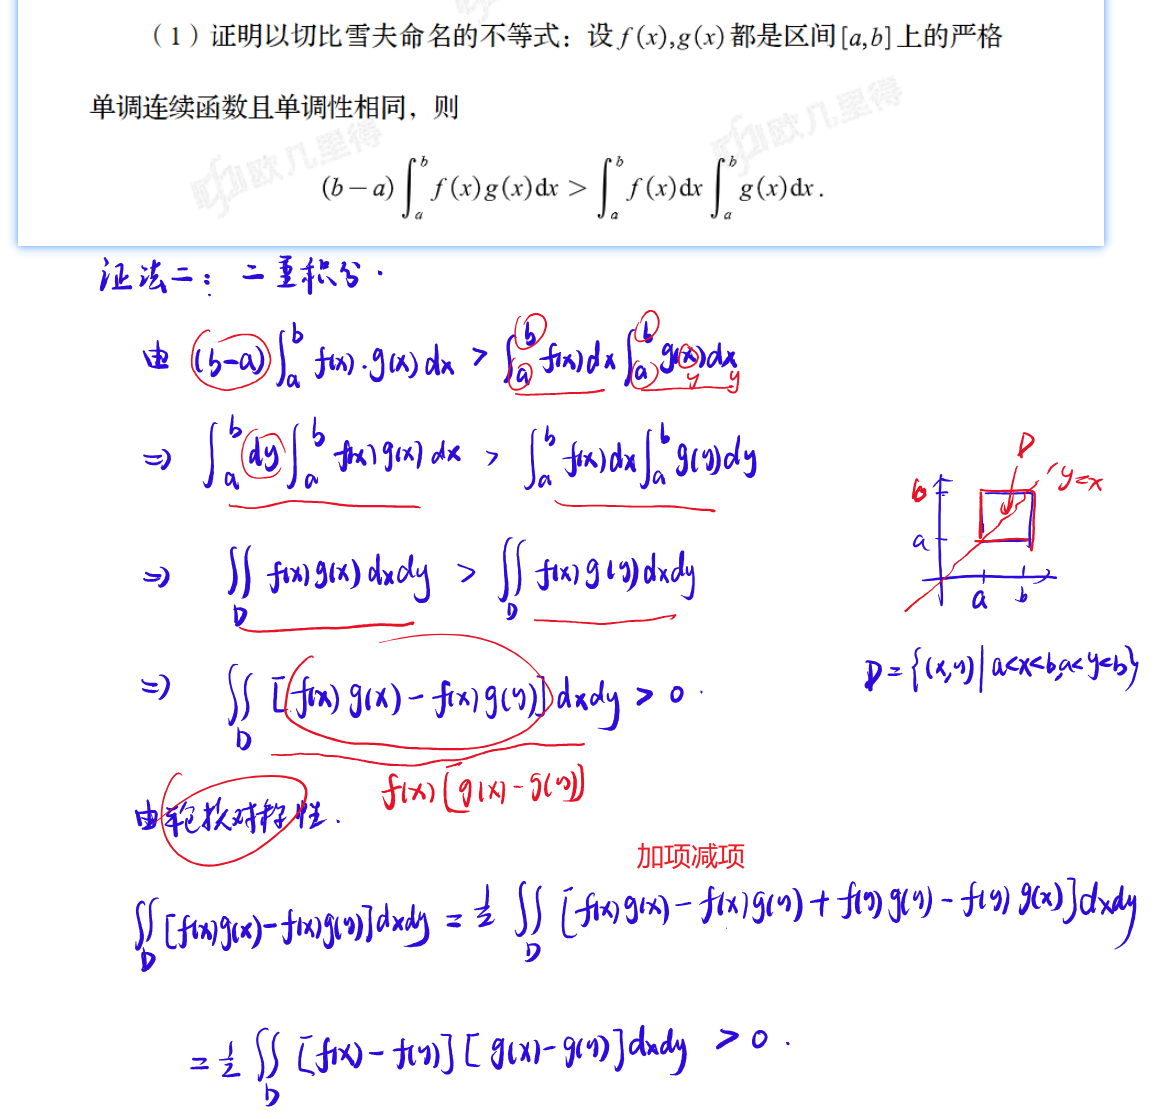 （1）证明以切比雪夫命名的不等式：设 f(x),g(x) 都是区间[a,b]上的严格
单调连续函数且单调性相同，则
(b－a)∫_a^b f(x)g(x)dx > ∫_a^b f(x)dx ∫_a^b g(x)dx.
欧几里得
欧几里得
证法二：二重积分.
由 (b-a)∫_a^b f(x)·g(x)dx > ∫_a^b f(x)dx ∫_a^b g(x)dx
y y
⇒ ∫_a^b dy ∫_a^b f(x)g(x)dx > ∫_a^b f(x)dx ∫_a^b g(y)dy
D
b y=x
a
a b
⇒ ∬_D f(x)g(x)dxdy > ∬_D f(x)g(y)dxdy
D={(x,y)|a<x<b,a<y<b}
⇒ ∬_D [f(x)g(x)-f(x)g(y)]dxdy > 0.
f(x)[g(x)-g(y)]
由轮换对称性.
加项减项
∬_D [f(x)g(x)-f(x)g(y)]dxdy = 1/2 ∬_D [f(x)g(x)-f(x)g(y)+f(y)g(y)-f(y)g(x)]dxdy
= 1/2 ∬_D [f(x)-f(y)][g(x)-g(y)]dxdy > 0.